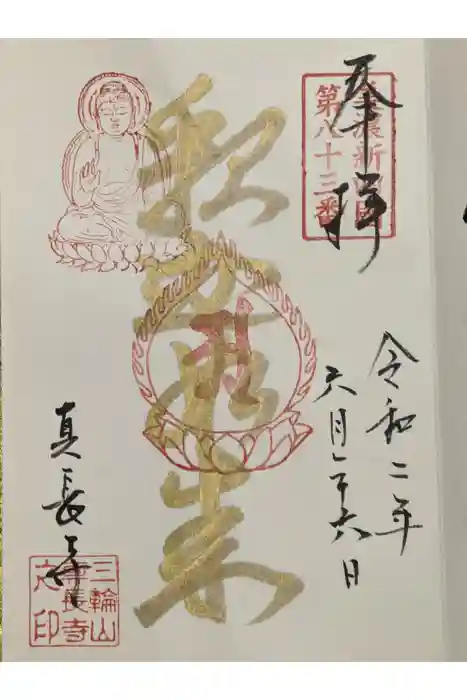 奉拝
美濃新四国
第八十三番
令和二年
六月二十六日
釈迦如来
真長寺
三輪山
真長寺
之印